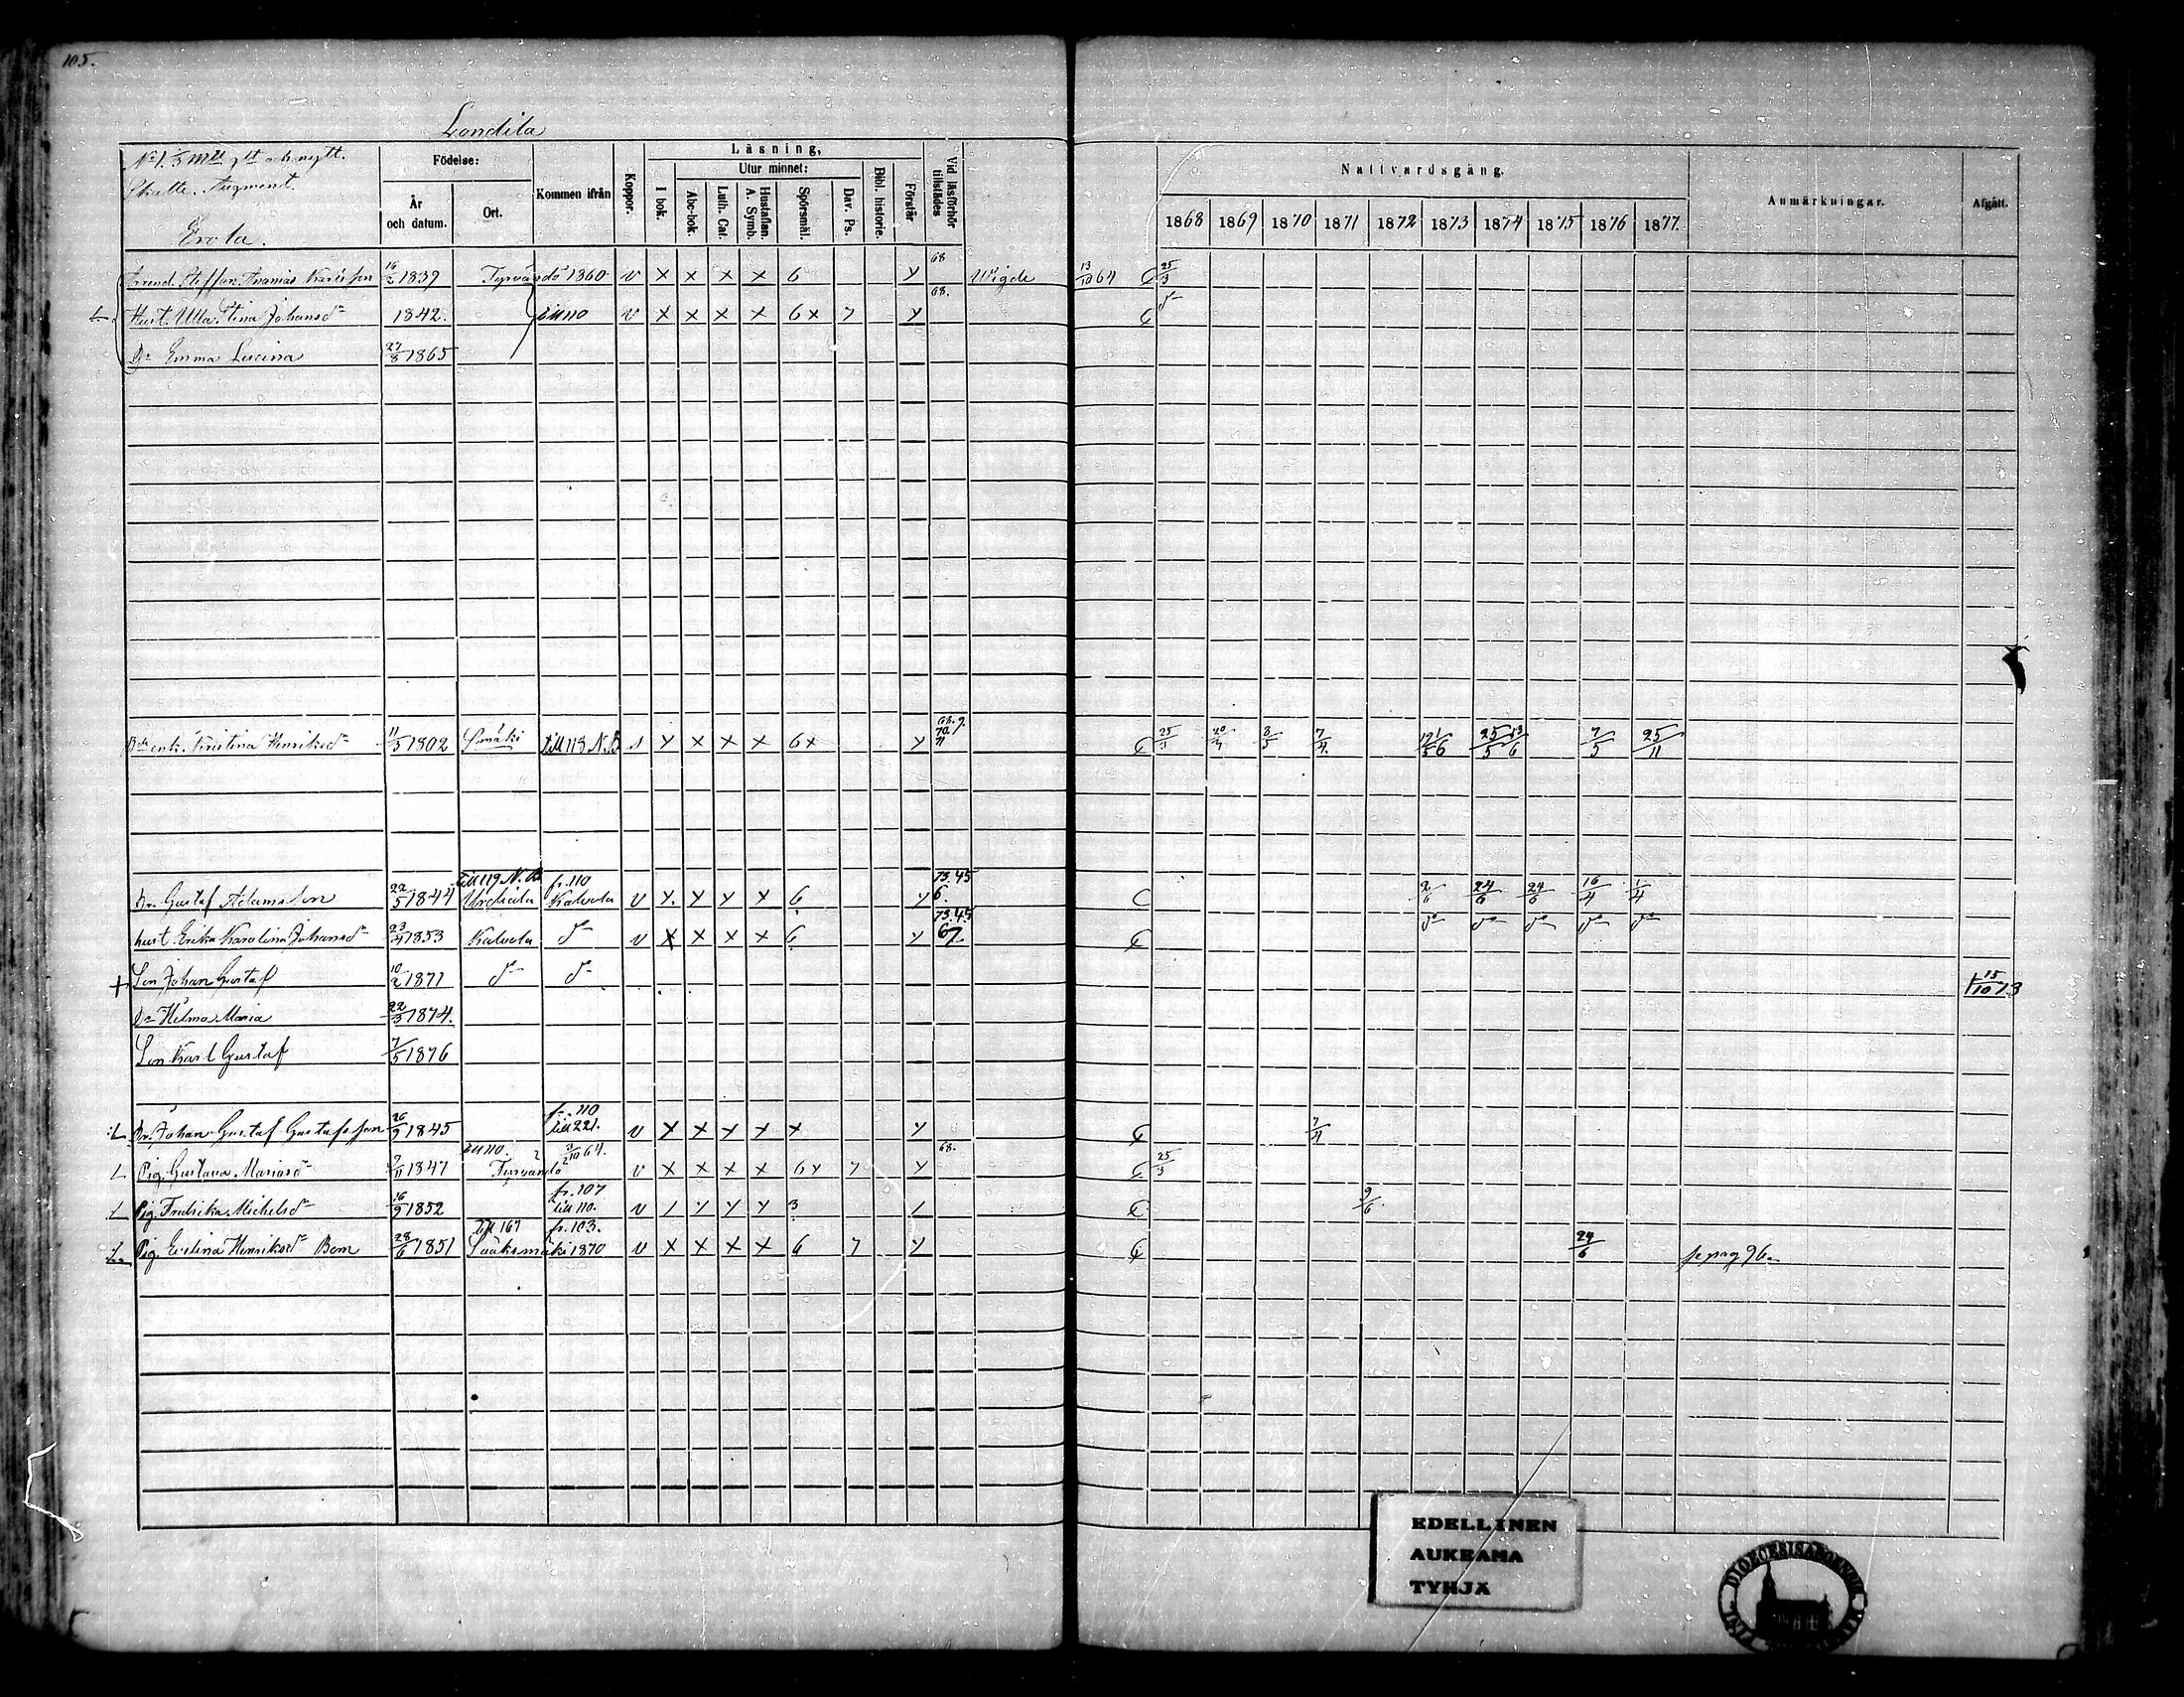 105.
Londila
No 1. 1/3 Mtl och nytt.
Skatte. Augment.
Erola.
Födelse:
År och datum.
Ort.
Kommen ifrån
Koppor.
Läsning,
I bok.
Utur minnet:
Abc-bok.
Luth. Cat.
Hustaflan. A. Symb.
Spörsmål.
Dav. Ps.
Bibl. historie.
Förstår
Vid läsförhör tillstädes
Nattvardsgång.
1868 1869 1870 1871 1872 1873 1874 1875 1876 1877.
Anmärkningar.
Afgått.
Arrend. Steffan Ananias 16/2 1839 Tyrvändö 1860 v x x x x 6 y 68 Wigde 13/10 64 C 25/3
L Hust. Ulla Stina Johansdr 1842. till 110 v x x x x 6x 7 y 68. C do
Dr Emma Lucina 27/8 1865
enk. Kristina Henriksdr 11/5 1802 Smäki till 118 N.B s y x x x 6x y 68.9. 70. 71 C 25/3 20/4 8/5 7/4 1/5 6 25/5 13/6 7/5 25/11
till 119 N.B. fr. 110 73.45
Dr. Gustaf Adamsson 22/5 1844 Urdiala Kalvola v y. x y x 6 y 6. C 2/6 24/6 24/6 16/4 1/4
73.45
hust. Erika Karolina Johansdr 23/4 1853 Kalvola do v x x x x 6 y 67 C do do do do do
+ Son Johan Gustaf 10/2 1871 do do † 15/10 73
Dr Hilma Maria 22/3 1874.
Son Karl Gustaf 7/5 1876
fr. 110
L Dr. Johan Gustaf Gustafsson 26/9 1845 till 221. v x x x x x y C 7/4
till 110. 3/10 64. 68.
L Pig. Gustava Mariasdr 7/11 1847 Tyrvändö v x x x x 6x 7 y C 25/3
fr. 107
L Pig. Fredrika Michelsdr 16/9 1852 till 110. v / y y y 3 / C 9/6
till 167 fr. 103.
Pig. Evelina Henriksdr Bom 28/6 1851 Sääksmäki 1870 v x x x x 6 7 y C 24/6 se pag 96.
EDELLINEN
AUKEAMA
TYHJÄ